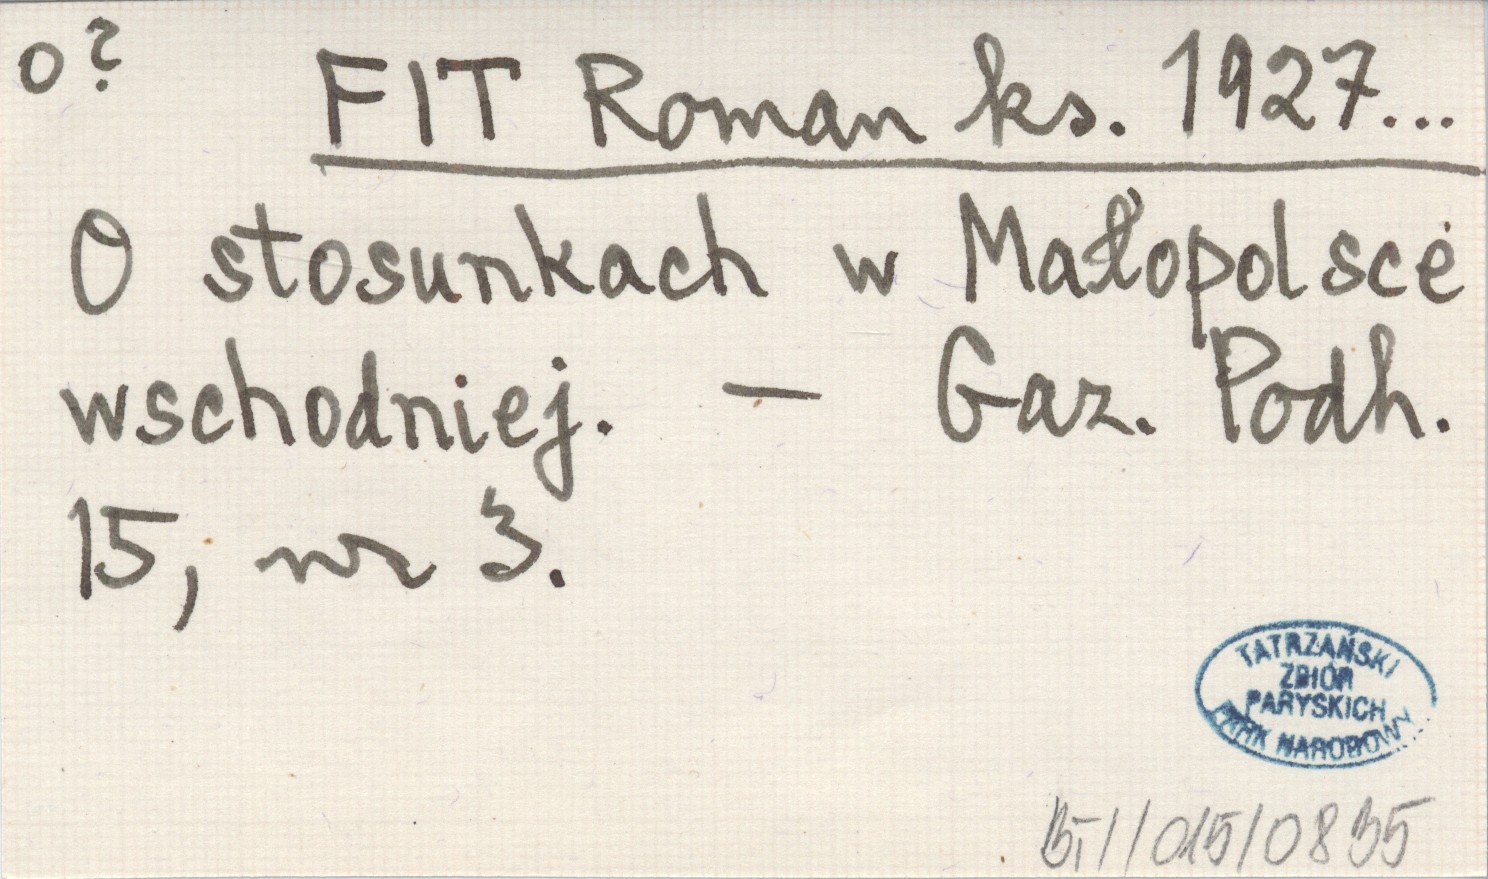 o?
FIT Roman ks. 1927...
O stosunkach w Małopolsce
wschodniej. — Gaz. Podh.
15, nr 3.
TATRZAŃSKI
ZBIÓR
PARYSKICH
PARK NARODOWY